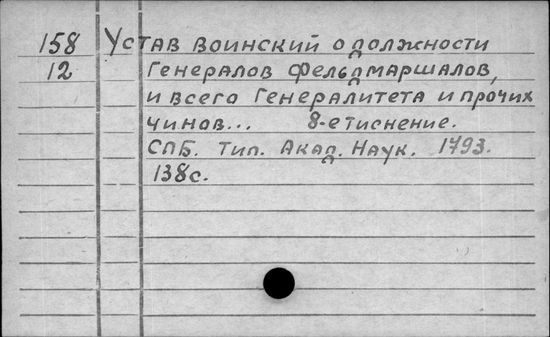 158 Устав воинский о должности
12 Генералов фельдмаршалов,
и всего Генералитета и прочих
чинов... 8-е тиснение.
СПБ. Тип. Акад. Наук. 1793.
138с.